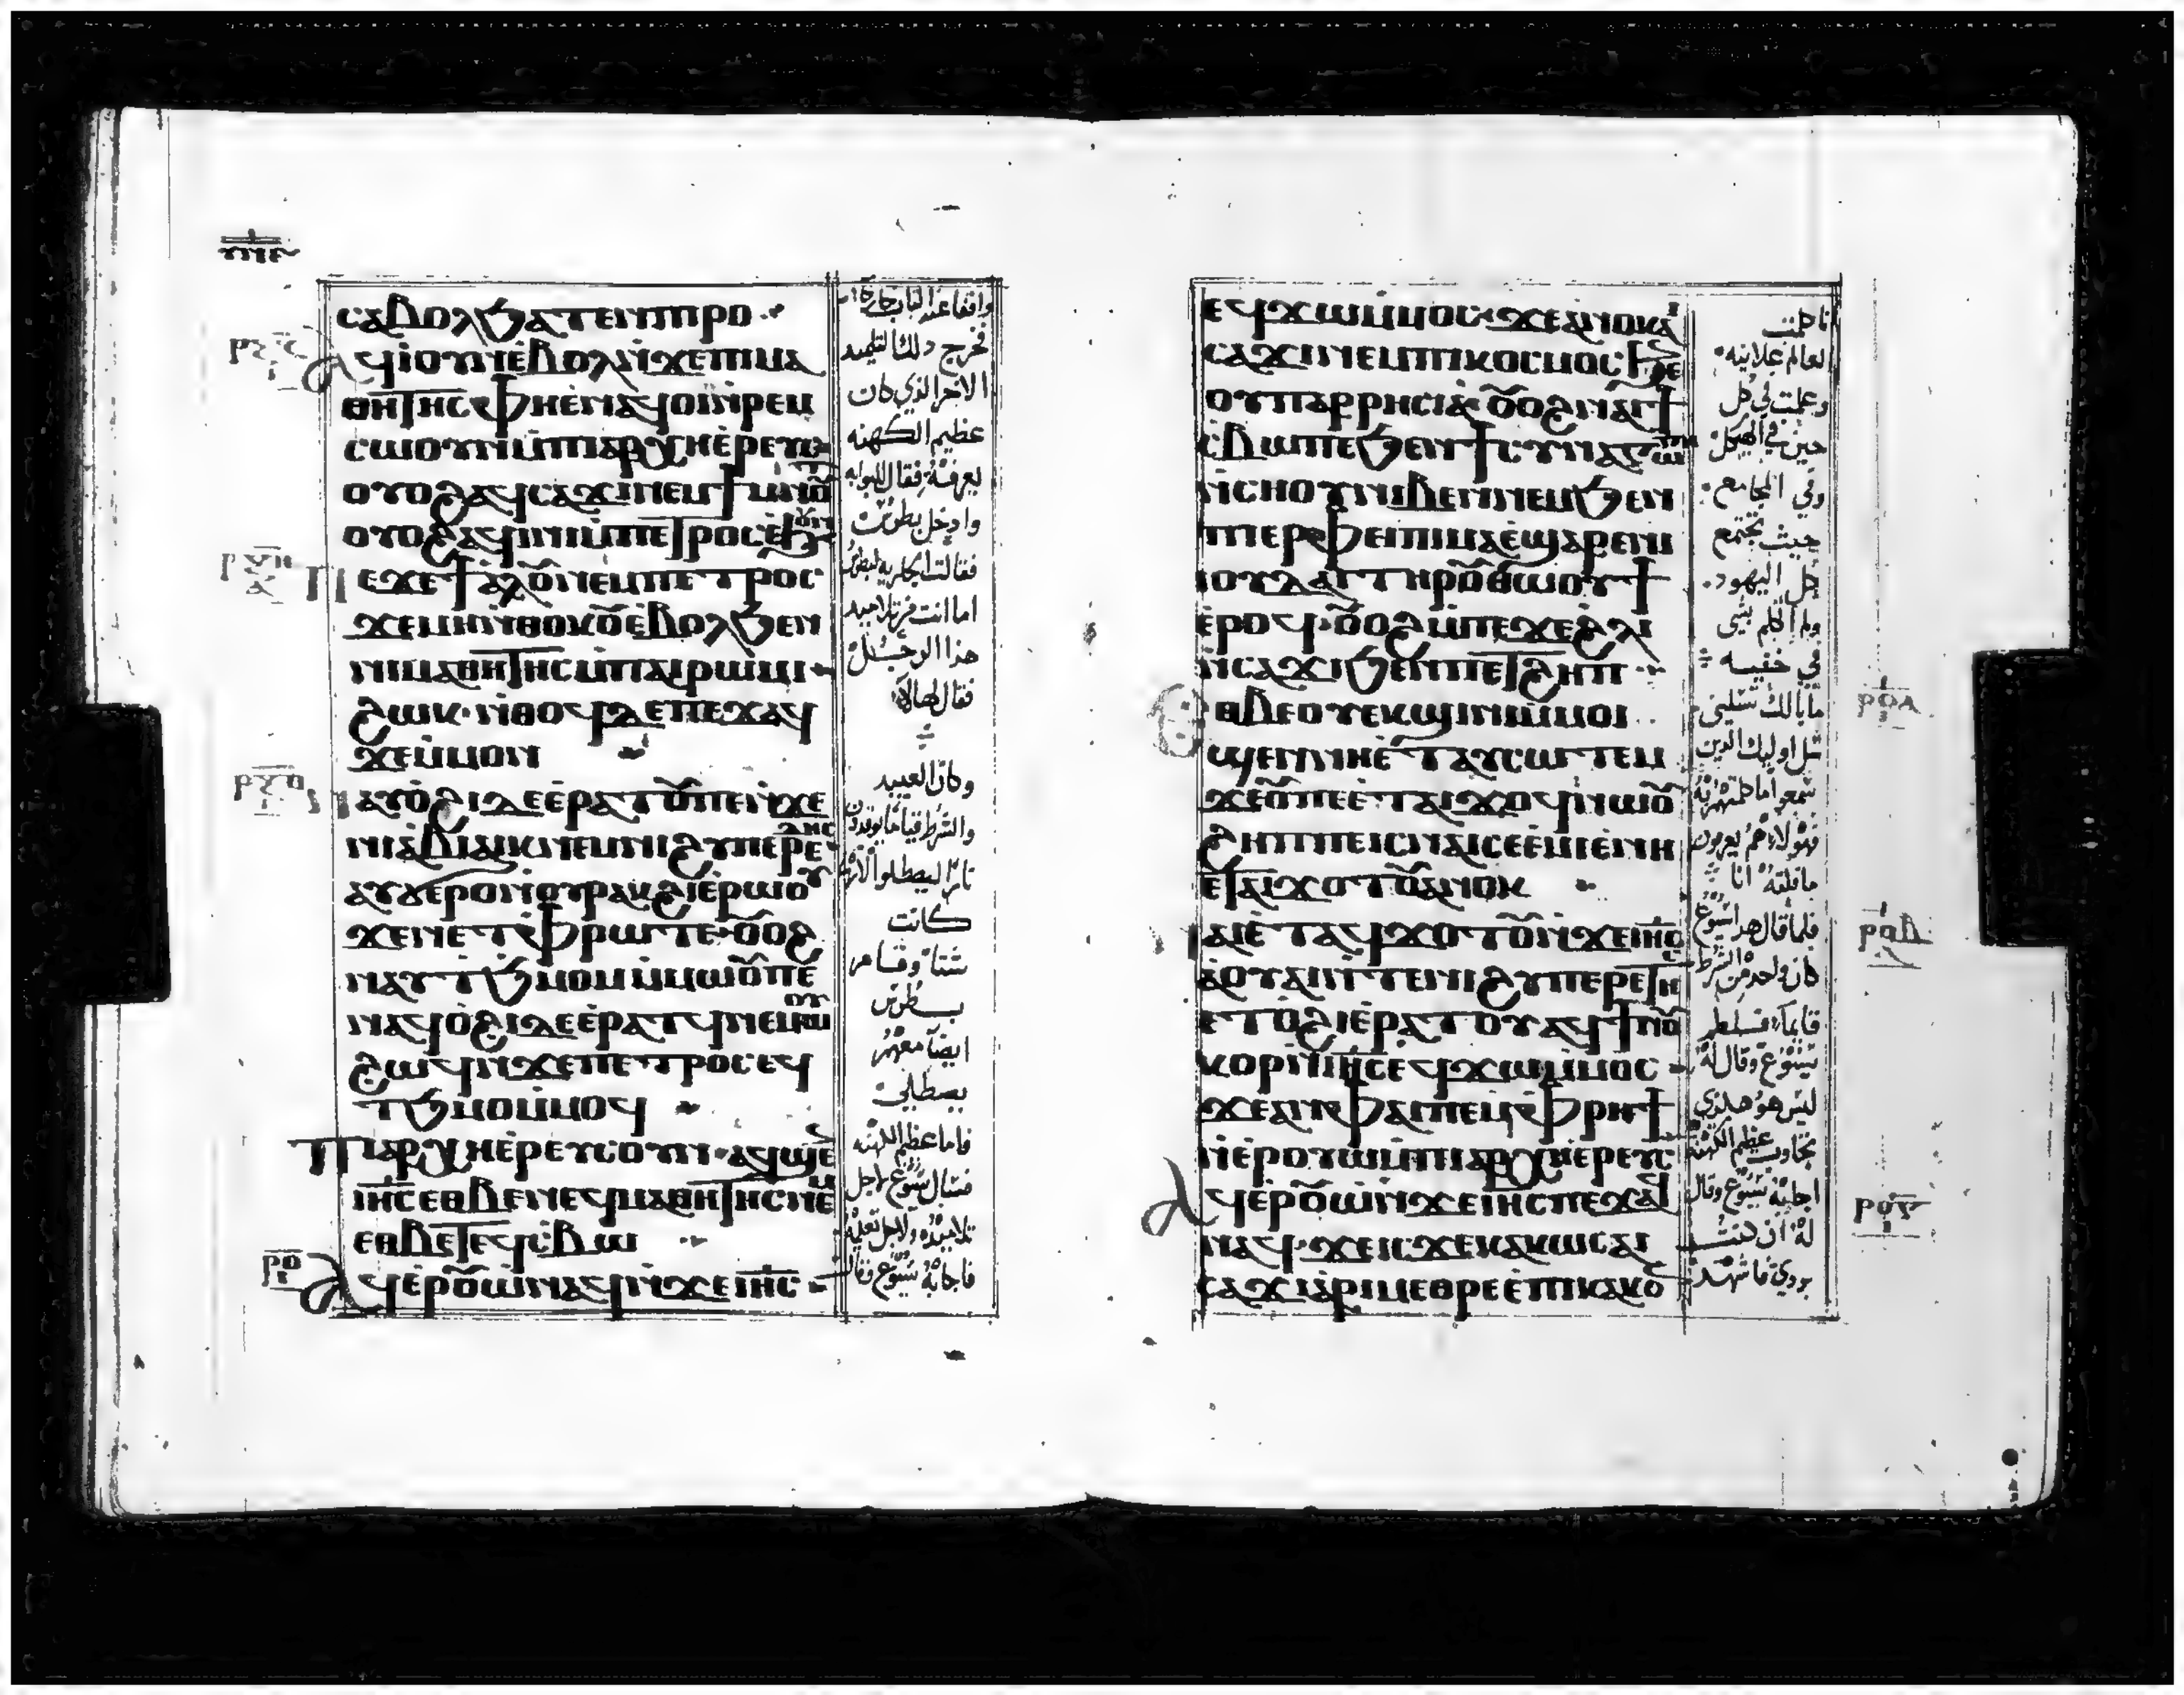 ⲥⲁⲃⲟⲗϧⲁⲧⲉⲛⲡⲓⲣⲟ
ⲁϥⲓⲟⲩⲛⲉⲃⲟⲗⲛϫⲉⲡⲓⲙⲁ
ⲑⲏⲧⲏⲥⲫⲏⲉⲛⲁϥⲟⲓⲛⲣⲉⲙ
ⲥⲱⲟⲩⲛⲙⲡⲓⲁⲣⲭⲏⲉⲣⲉⲩⲥ
ⲟⲩⲟϩⲁϥⲥⲁϫⲓⲛⲉⲙϯⲙⲛⲟⲩ
ⲟⲩⲟϩⲁϥⲓⲛⲓⲙⲡⲉⲧⲣⲟⲥⲉϧⲟⲩⲛ
ⲡⲉϫⲉϯⲁⲗⲟⲩⲛⲉⲙⲡⲉⲧⲣⲟⲥ
ϫⲉⲙⲏⲛⲑⲟⲕⲟⲩⲉⲃⲟⲗϧⲉⲛ
ⲛⲓⲙⲁⲑⲏⲧⲏⲥⲙⲡⲁⲓⲣⲱⲙⲓ
ϩⲱⲕ·ⲛⲑⲟϥⲇⲉⲡⲉϫⲁϥ
ϫⲉⲙⲙⲟⲛ
ⲛⲁⲩⲟϩⲓⲇⲉⲉⲣⲁⲧⲟⲩⲡⲉⲛϫⲉ
ⲛⲓⲁⲃⲓⲁⲓⲕⲛⲉⲙⲛⲓϩⲩⲡⲉⲣⲉⲧⲏⲥ
ⲁⲩϭⲉⲣⲟⲛⲟⲩⲣⲁⲕϩⲓⲉⲣⲱⲟⲩ
ϫⲉⲛⲉⲧⲉⲫⲣⲱⲧⲉ·ⲟⲩⲟϩ
ⲛⲁⲩⲧϧⲙⲟⲙⲙⲙⲱⲟⲩⲡⲉ
ⲛⲁϥⲟϩⲓⲇⲉⲉⲣⲁⲧϥⲛⲉⲙⲱⲟⲩ
ϩⲱϥⲛϫⲉⲡⲉⲧⲣⲟⲥⲉϥ
ⲧϧⲙⲟⲙⲙⲙⲟϥ
ⲡⲓⲁⲣⲭⲏⲉⲣⲉⲩⲥⲟⲩⲛ·ⲁϥϣⲉⲛ
ⲓⲏⲥⲉⲑⲃⲉⲛⲉϥⲙⲁⲑⲏⲧⲏⲥⲛⲉⲙ
ⲉⲑⲃⲉⲧⲉϥⲥⲃⲱ
ⲣⲟ
ⲁϥⲉⲣⲟⲩⲱⲛⲁϥⲛϫⲉⲓⲏⲥ
واقفا عند الباب خارجا
فخرج ذلك التلميذ
الاخر الذي كان
عظيم الكهنه
يعرفه فقال للبوابه
وادخل بطرس
فقالت الجاريه لبطرس
اما انت من تلاميذ
هذا الرجل
فقال لها لا
وكان العبيد
كانت
شتا وقام
بطرس
ايضا معهم
يصطلي
فاما عظيم الكهنه
فسال يسوع لاجل
تلاميذه ولاجل تعليمه
فاجابه يسوع وقال
ⲉϥϫⲱⲙⲙⲟⲥ·ϫⲉⲁⲛⲟⲕⲁⲓ
ⲥⲁϫⲓⲛⲉⲙⲡⲓⲕⲟⲥⲙⲟⲥϧⲉⲛ
ⲟⲩⲡⲁⲣⲣⲏⲥⲓⲁ·ⲟⲩⲟϩⲛⲁⲓϯ
ⲥⲃⲱⲡⲉϧⲉⲛϯⲥⲩⲛⲁⲅⲱⲅⲏ
ⲛⲥⲏⲟⲩⲛⲓⲃⲉⲛⲛⲉⲙϧⲉⲛ
ⲡⲓⲉⲣⲫⲉⲓⲡⲓⲙⲁⲉϣⲁⲣⲉⲛⲓ
ⲓⲟⲩⲇⲁⲓⲧⲏⲣⲟⲩⲑⲱⲟⲩϯ
ⲉⲣⲟϥ·ⲟⲩⲟϩⲙⲡⲉϫⲉϩⲗⲓ
ⲛⲥⲁϫⲓϧⲉⲛⲡⲉⲧϩⲏⲡ
ⲉⲑⲃⲉⲟⲩⲉⲕϣⲓⲛⲓⲙⲙⲟⲓ
ϣⲉⲛⲛⲏⲉⲧⲁⲩⲥⲱⲧⲉⲙ
ϫⲉⲟⲩⲡⲉⲉⲧⲁⲓϫⲟϥⲛⲱⲟⲩ
ϩⲏⲡⲡⲉⲓⲥⲛⲁⲓⲥⲉⲉⲙⲓⲉⲛⲏ
ⲉⲧⲁⲓϫⲟⲧⲟⲩⲁⲛⲟⲕ
ⲛⲁⲓⲉⲧⲁϥϫⲟⲧⲟⲩⲛϫⲉⲓⲏⲥ
ⲁⲟⲩⲁⲓⲛⲧⲉⲛⲓϩⲩⲡⲉⲣⲉⲧⲏⲥ
ⲉⲧⲟϩⲓⲉⲣⲁⲧⲟⲩⲁϥϯⲛⲟⲩ
ⲕⲟⲣⲛⲓⲏⲥⲉϥϫⲱⲙⲙⲟⲥ
ϫⲉⲁⲛⲫⲁⲓⲡⲉⲙⲫⲣⲏϯ
ⲛⲉⲣⲟⲩⲱⲙⲡⲓⲁⲣⲭⲏⲉⲣⲉⲩⲥ
ⲁϥⲉⲣⲟⲩⲱⲛϫⲉⲓⲏⲥⲡⲉϫⲁϥ
ⲛⲁϥ·ϫⲉⲓⲥϫⲉⲕⲁⲕⲱⲥⲁⲓ
ⲥⲁϫⲓⲁⲣⲓⲙⲉⲑⲣⲉⲉⲡⲓⲕⲁⲕⲟ
ⲣⲟⲁ
ⲣⲟⲃ
ⲣⲟⲅ
انا كلمت
العالم علانيه
وعلمت في كل
حين في الهيكل
وفي المجامع
حيث تجتمع
كل اليهود
ولم اتكلم بشي
في خفيه
ما بالك تسلني
سل اوليك الذين
ما قلته انا
فلما قال هذا يسوع
كان واحد من الشرط
يسوع وقال له
ليس هو هكذي
تجاوب عظيم الكهنه
اجابه يسوع وقال
له ان كنت
بردي فاشهد